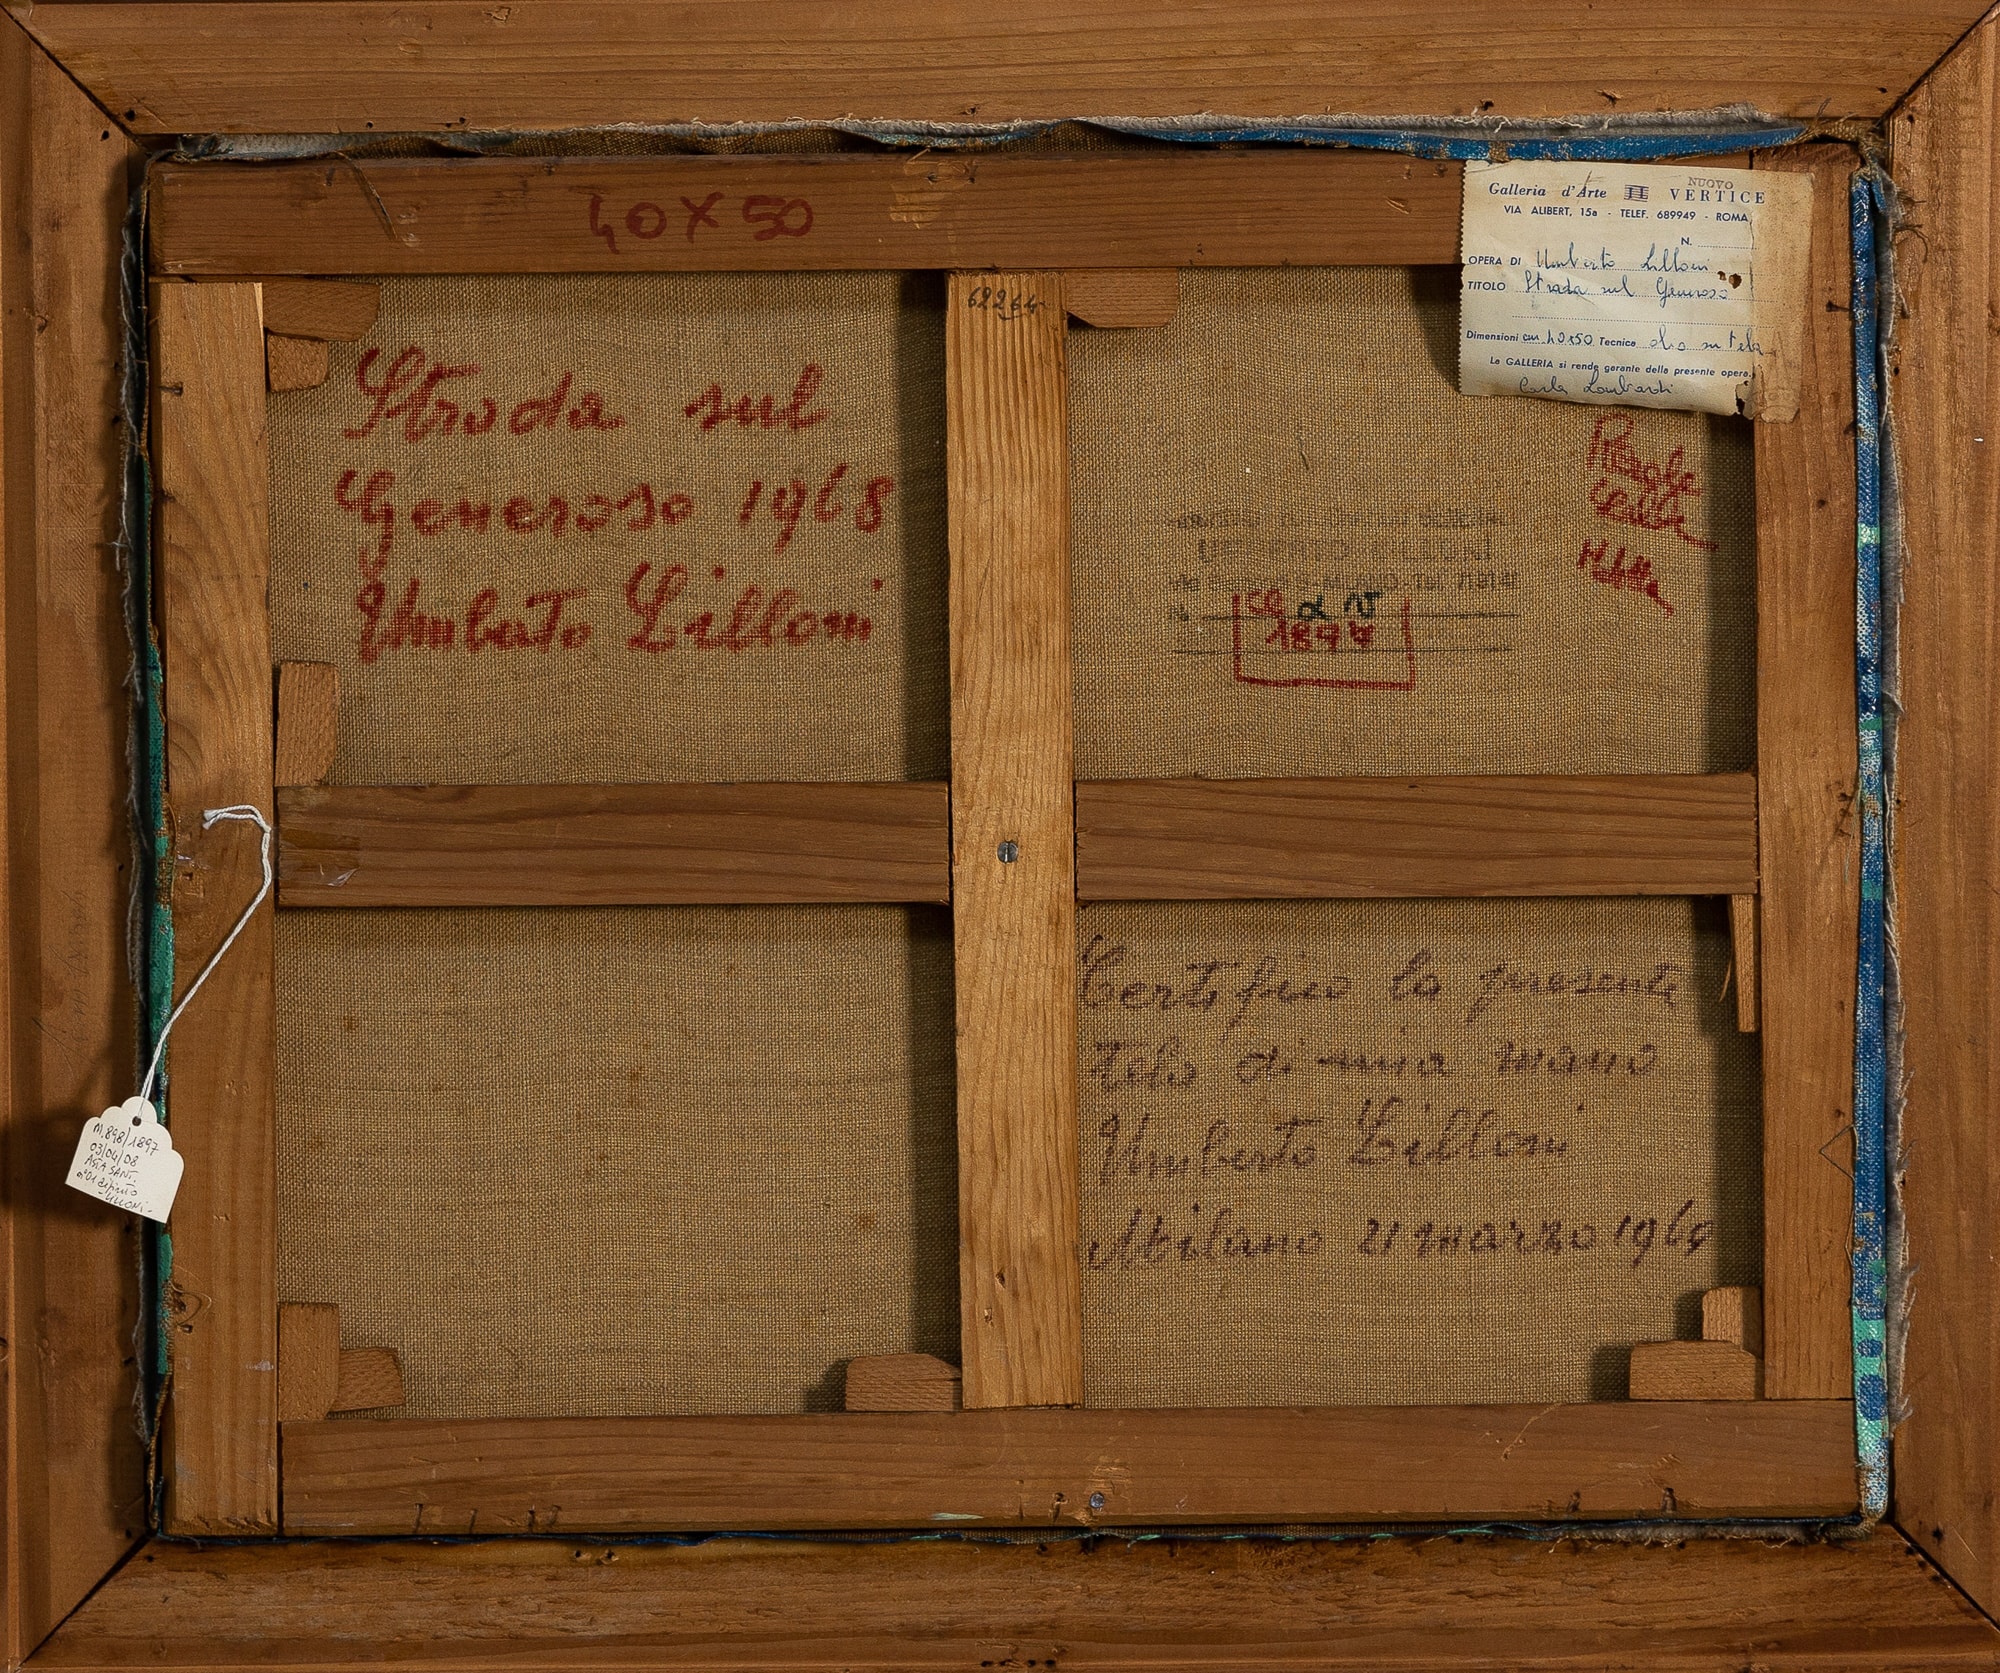 40 x 50
Galleria d'Arte NUOVO VERTICE
VIA ALIBERT, 15a - TELEF. 689949 - ROMA
N.
OPERA DI Umberto Lilloni
TITOLO Strada sul Generoso
Dimensioni cm 40x50 Tecnica olio su tela
La GALLERIA si rende garante della presente opera.
Carla Lombardi
62264
Strada sul
Generoso 1968
Umberto Lilloni
UMBERTO LILLONI
1897
Certifico la presente
tela di mia mano
Umberto Lilloni
Milano 21 marzo 1969
M.898/1897
03/04/08
ASTA SANT.
n°01 dipinto
LILLONI